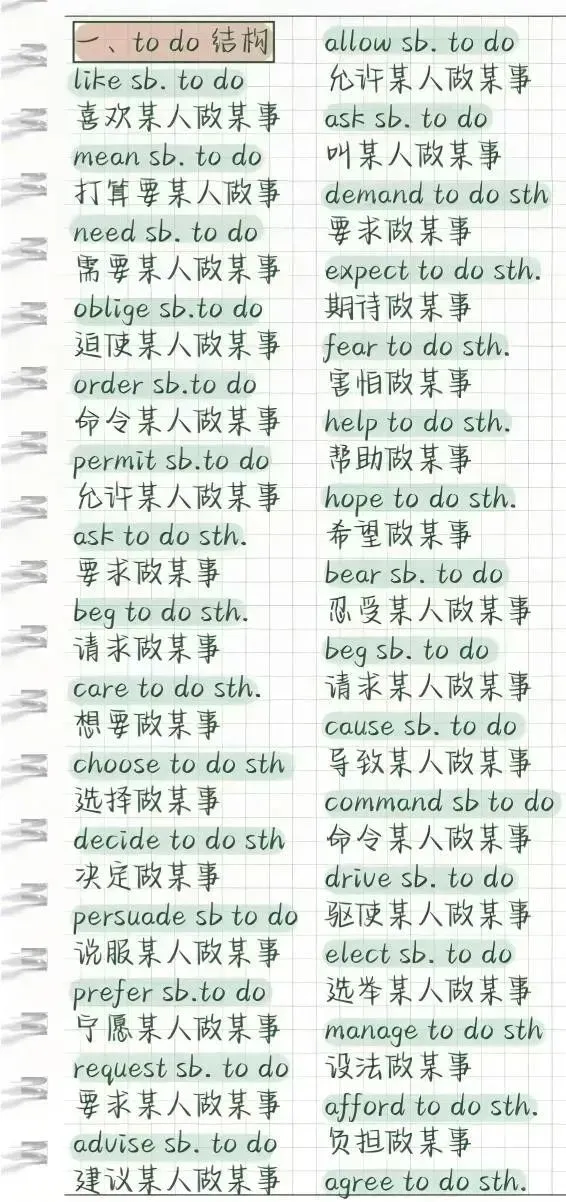 一、to do 结构
like sb. to do
喜欢某人做某事
mean sb. to do
打算要某人做事
need sb. to do
需要某人做某事
oblige sb.to do
迫使某人做某事
order sb.to do
命令某人做某事
permit sb.to do
允许某人做某事
ask to do sth.
要求做某事
beg to do sth.
请求做某事
care to do sth.
想要做某事
choose to do sth
选择做某事
decide to do sth
决定做某事
persuade sb to do
说服某人做某事
prefer sb.to do
宁愿某人做某事
request sb. to do
要求某人做某事
advise sb. to do
建议某人做某事
allow sb. to do
允许某人做某事
ask sb. to do
叫某人做某事
demand to do sth
要求做某事
expect to do sth.
期待做某事
fear to do sth.
害怕做某事
help to do sth.
帮助做某事
hope to do sth.
希望做某事
bear sb. to do
忍受某人做某事
beg sb. to do
请求某人做某事
cause sb. to do
导致某人做某事
command sb to do
命令某人做某事
drive sb. to do
驱使某人做某事
elect sb. to do
选举某人做某事
manage to do sth
设法做某事
afford to do sth.
负担做某事
agree to do sth.